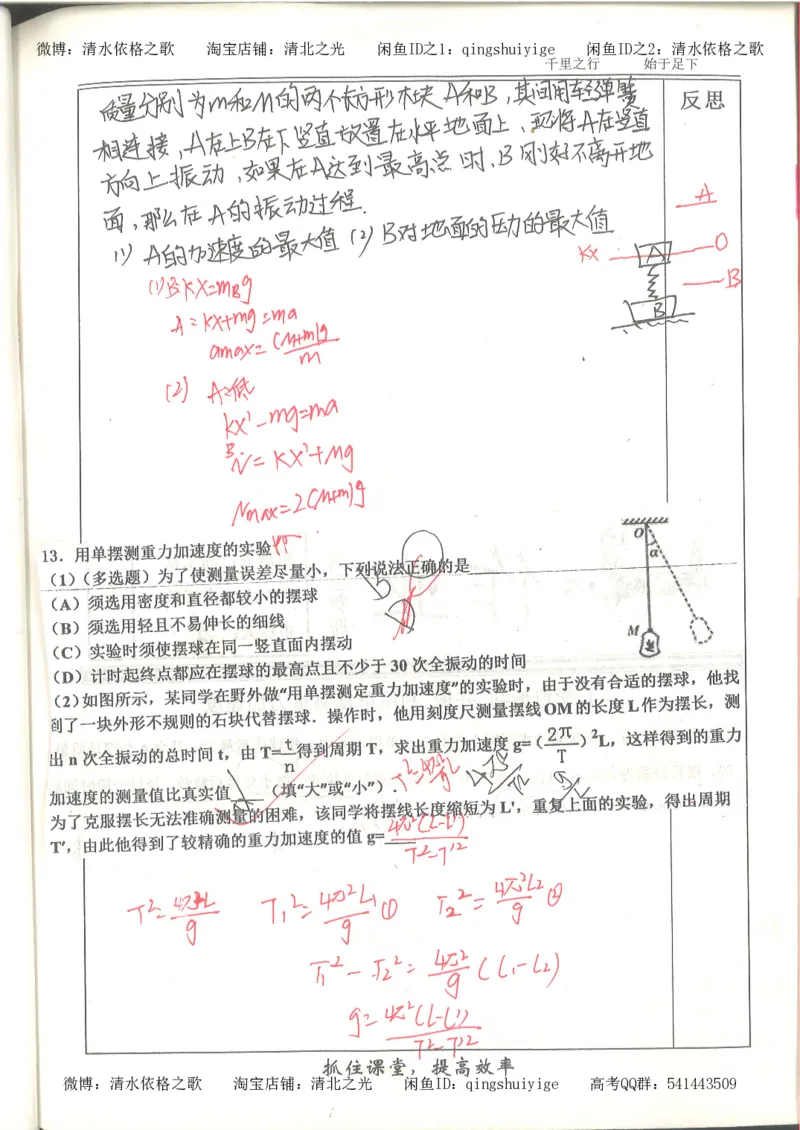 微博：清水依格之歌 淘宝店铺：清北之光 闲鱼ID之1：qingshuiyige 闲鱼ID之2：清水依格之歌
千里之行 始于足下
反思
质量分别为m和M的两个长方形木块A和B，其间用轻弹簧
相连接，A在上B在下竖直放置在水平地面上、现将A在竖直
方向上振动，如果在A达到最高点时，B刚好不离开地
面，那么在A的振动过程.
(1) A的加速度的最大值 (2) B对地面的压力的最大值
A
O
KX
A
B
B
(1)B:KX=mBg
A=KX+mg=ma
amax=(M+m)g/m
(2) A:低
KX'-mg=ma
B N=KX'+Mg
Nmax=2(M+m)g
13．用单摆测重力加速度的实验
（1）（多选题）为了使测量误差尽量小，下列说法正确的是
（A）须选用密度和直径都较小的摆球
（B）须选用轻且不易伸长的细线
（C）实验时须使摆球在同一竖直面内摆动
（D）计时起终点都应在摆球的最高点且不少于 30 次全振动的时间
O
α
M
（2）如图所示，某同学在野外做“用单摆测定重力加速度”的实验时，由于没有合适的摆球，他找
到了一块外形不规则的石块代替摆球．操作时，他用刻度尺测量摆线 OM 的长度 L 作为摆长，测
出 n 次全振动的总时间 t，由 T=t/n得到周期 T，求出重力加速度 g=（2π/T）²L，这样得到的重力
加速度的测量值比真实值____（填“大”或“小”）．
T²=4π²L/g
为了克服摆长无法准确测量的困难，该同学将摆线长度缩短为 L'，重复上面的实验，得出周期
T'，由此他得到了较精确的重力加速度的值 g=4π²(L-L')/T²-T'²
T²=4π²L/g T₁²=4π²L₁/g ① T₂²=4π²L₂/g ②
T₁²-T₂²=4π²/g(L₁-L₂)
g=4π²(L-L')/T²-T'²
抓住课堂，提高效率
微博：清水依格之歌 淘宝店铺：清北之光 闲鱼ID：qingshuiyige 高考QQ群：541443509